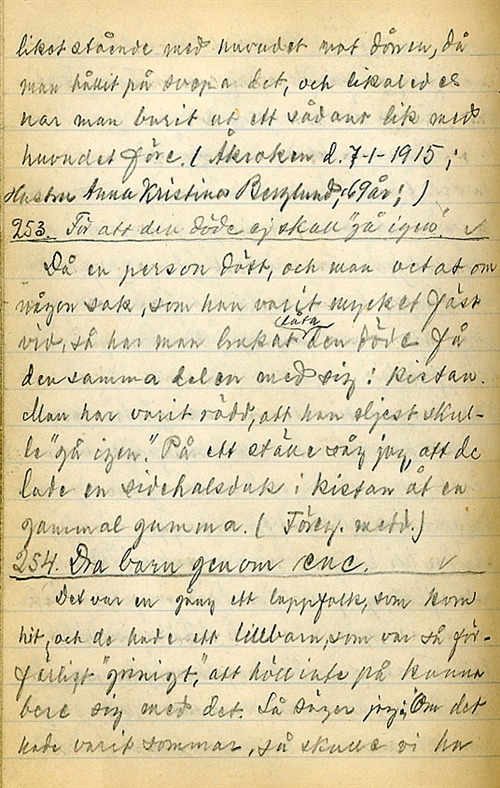 liket stående med huvudet mot dörren, då
man hållit på sopa det, och likaledes
har man burit ut ett sådant lik med
huvudet före. (Åkroken d. 7-1-1915;
Hustru Anna Kristina Berglund, 69 år;)
253. För att den döde ej skall "gå igen". ✓
Då en person dött, och man vetat om
någon sak, som han varit mycket fäst
vid, så har man brukat låta den döde få
densamma delen med sig i kistan.
Man har varit rädd, att han eljest skul-
le "gå igen". På ett ställe såg jag, att de
lade en sidehalsduk i kistan åt en
gammal gumma. (Föreg. medd.)
254. Dra barn genom ene. ✓
Det var en gång ett lappfolk, som kom
hit, och de hade ett lillbarn, som var så för-
färligt "grinigt", att höll inte på kunna
bere sig med det. Så säger jag: "Om det
hade varit sommar, så skulle vi ha